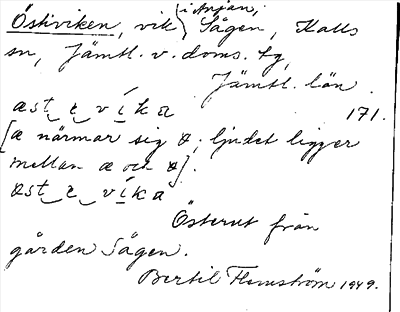 Östiviken, vik i Anjan, Sågen, Kalls
sn, Jämtl. v. doms. tg,
Jämtl. län.
æst e víka 171.
[æ närmar sig ɞ; ljudet ligger
mellan æ och ɞ].
ɞst e víka
Österut från
gården Sågen.
Bertil Flemström 1949.